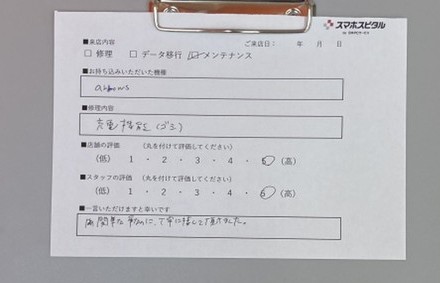 スマホスピタル
■来店内容
ご来店日: 年 月 日
□ 修理 □ データ移行 ☑ メンテナンス
■お持ち込みいただいた機種
arrows
■修理内容
充電機能(ゴミ)
■店舗の評価 (丸を付けて評価してください)
(低) 1 ・ 2 ・ 3 ・ 4 ・ 5 (高)
■スタッフの評価 (丸を付けて評価してください)
(低) 1 ・ 2 ・ 3 ・ 4 ・ 5 (高)
■一言いただけますと幸いです
簡単な して頂きました。